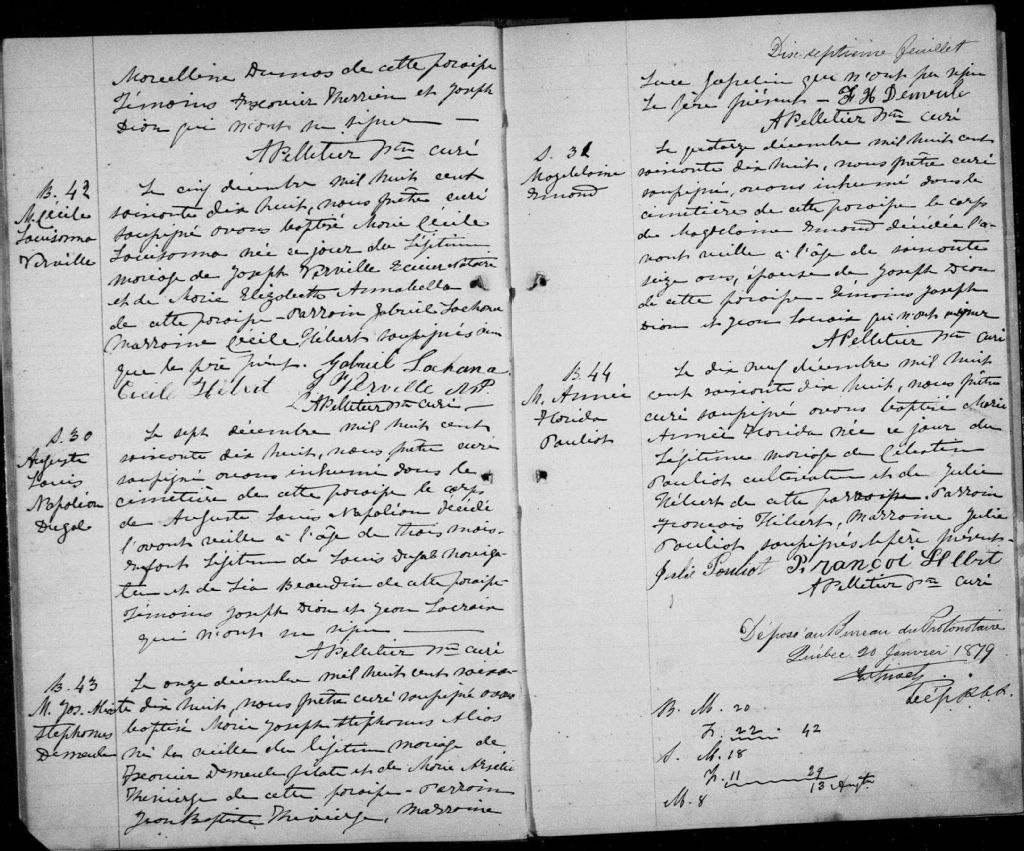 Marcelline Dumas de cette paroisse
Témoins Exavier Therrien et Joseph
Dion qui n'ont su signer —
APelletier Ptre curé
B. 42
M. Cécile
Louisonna
Verville
Le cinq décembre mil huit cent
soixante dix huit, nous prêtre curé
soussigné avons baptisé Marie Cécile
Louisonna née ce jour du légitime
mariage de Joseph Verville Ecuier Notaire
et de Marie Elizabeth Annabella
de cette paroisse - Parrain Gabriel Lachance
Marraine Cécile Hébert soussignés ainsi
que le père présent. Gabriel Lachance
Cecile Hébert J Verville N.P.
APelletier Ptre curé —
S. 30
Auguste
Louis
Napoléon
Dugal
Le sept décembre mil huit cent
soixante dix huit, nous prêtre curé
soussigné avons inhumé dans le
cimetière de cette paroisse le corps
de Auguste Louis Napoléon décédé
l'avant veille à l'âge de trois mois
enfant légitime de Louis Dugal naviga-
teur et de Léa Beaudin de cette paroisse
Témoins Joseph Dion et Jean Lacroix
qui n'ont su signer —
APelletier Ptre curé
B. 43
M. Jos. Alias
Stephanus
Demeule
Le onze décembre mil huit cent soixan-
te dix huit, nous prêtre curé soussigné avons
baptisé Marie Joseph Stephanus Alias
né la veille du légitime mariage de
Exavier Demeule pilote et de Marie
Thivierge de cette paroisse - Parrain
Jean Baptiste Thivierge, Marraine
Dix septième feuillet
Luce Gosselin qui n'ont pu signer
Le père présent - F H Demeule
APelletier Ptre curé
S. 31
Magdeleine
Emond
Le quatorze décembre mil huit cent
soixante dix huit, nous prêtre curé
soussigné, avons inhumé dans le
cimetières de cette paroisse le corps
de Magdelaine Emond décédée l'a-
vant veille à l'âge de soixante
seize ans, épouse de Joseph Dion
de cette paroisse - Témoins Joseph
Dion et Jean Lacroix qui n'ont signer
APelletier Ptre curé
B. 44
M. Année
Florida
Pauliot
Le dix neuf décembre mil huit
cent soixante dix huit, nous prêtre
curé soussigné avons baptisé Marie
Année Florida née ce jour du
légitime mariage de Célestin
Pauliot cultivateur et de Julie
Hébert de cette paroisse. Parrain
François Hébert, Marraine Julie
Pauliot soussignés le père présent -
Julie Pouliot François Hebert
APelletier Ptre curé
Déposé au Bureau du Protonotaire
Québec 20 Janvier 1879
Dép. P.C.S.
B. M. 20
F. 22 42
S. M. 18
F. 11 29
13 Augtn
M. 8